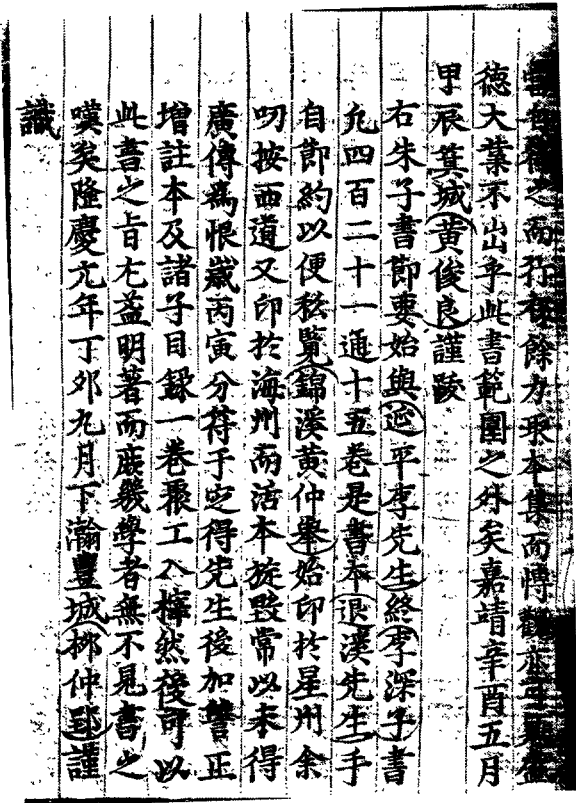 之而行有餘力取本集而博觀亦可
德大業不出乎此書範圍之外矣嘉靖辛酉五月
甲辰箕城黃俊良謹跋
右朱子書節要始與延平李先生終李深子書
凡四百二十一通十五卷是書本退溪先生手
自節約以便私覽錦溪黃仲擧始印於星州余
叨按西道又印於海州而活本旋毀常以未得
廣傳爲恨歲丙寅分符于定得先生後加讐正
增註本及諸子目錄一卷聚工入榟然後可以
此書之旨尤益明著而庶幾學者無不見書之
嘆矣隆慶元年丁卯九月下瀚豐城柳仲郢謹
識